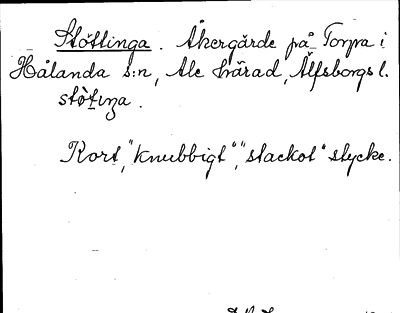 Stöttinga. Åkergärde på Torpa i
Hålanda s:n, Ale härad, Älfsborgs l.
stø̀tiŋa.
Kort, "knubbigt", "stackot" stycke.